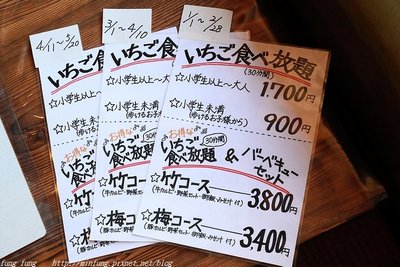 4/1~5/20
3/1~4/10
1/1~2/28
いちご食べ
いちご食べ
いちご食べ放題
(30分間)
☆小学生以上~大人
☆小学生以上~
☆小学生以上~大人 1,700円
☆小学生未満
(歩けるお子様
☆小学生未満
(歩けるお子様
☆小学生未満
(歩けるお子様から) 900円
お得な
いちご
食べ放題
お得な
いちご
食べ放題
お得な
いちご
食べ放題
(30分間)
& バーベキュー
セット
☆竹コース
☆竹コース
☆竹コース 3,800円
☆梅コース
☆梅コース
☆梅コース 3,400円
fung fung http://minfung.pixnet.net/blog